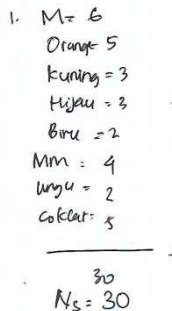 1. M = 6
Orange = 5
Kuning = 3
Hijau = 3
Biru = 2
MM = 4
Ungu = 2
Coklat = 5
30
Ns = 30